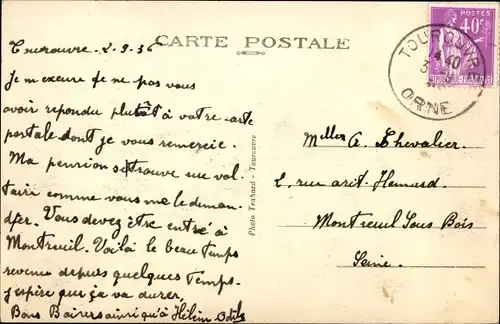 Tourouvre. 2.9.36
CARTE POSTALE
Je m'excuse de ne pas vous
avoir répondu plutôt à votre carte
postale dont je vous remercie.
Ma pension se trouve rue Vol
taire comme vous me le deman-
der. Vous devez être entré à
Montreuil. Voilà le beau temps
revenu depuis quelques temps.
j'espère que ça va durer,
Bons Baisers ainsi qu'à Hélèn
Photo Trahard - Tourouvre
POSTES
40c
TOUROUVRE
ORNE
A. Chevalier.
2, rue
Montreuil Sous Bois
Seine.